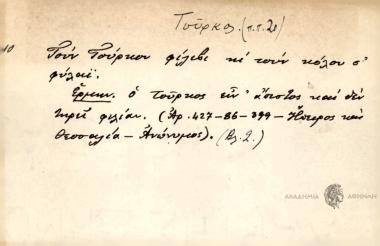 Τοῦρκος (π.τ. 20)
10
Τοὺν Τούρκου φίλευι κὶ τοὺν κόλου σ'
φύλαϊ.
Ἑρμην. ὁ Τοῦρκος εἶν' ἄπιστος καὶ δὲν
τηρεῖ φιλίαν. (Ἀρ. 427-86-399 - Ἤπειρος καὶ
Θεσσαλία - Ἀνώνυμος). (Βλ. 2.)
ΑΚΑΔΗΜΙΑ ΑΘΗΝΩΝ